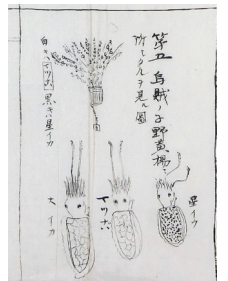 第五烏賊ノ子野黄楊ニ
附タルヲ見ル圖
白キハマツイカ黒キハ星イカ
星イカ
マツイカ
大イカ